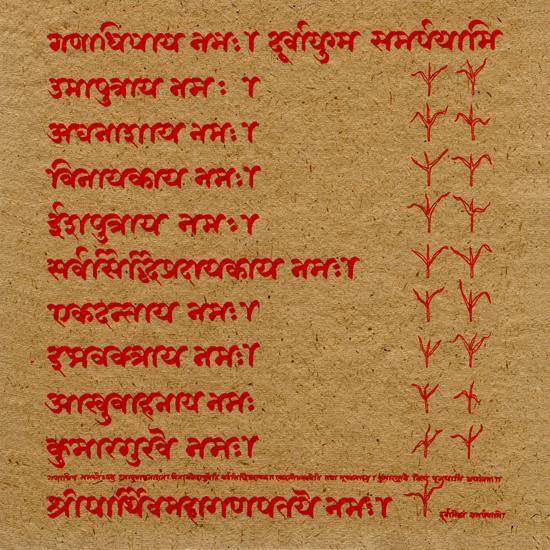 गणाधिपाय नमः। दूर्वायुग्म समर्पयामि
उमापुत्राय नमः ।
अघनाशाय नमः।
विनायकाय नमः।
ईशपुत्राय नमः।
सर्वसिद्धिप्रदायकाय नमः।
एकदन्ताय नमः।
इभवक्त्राय नमः।
आखुवाहनाय नमः
कुमारगुरवे नमः।
श्रीपार्थिवमहागणपतये नमः।